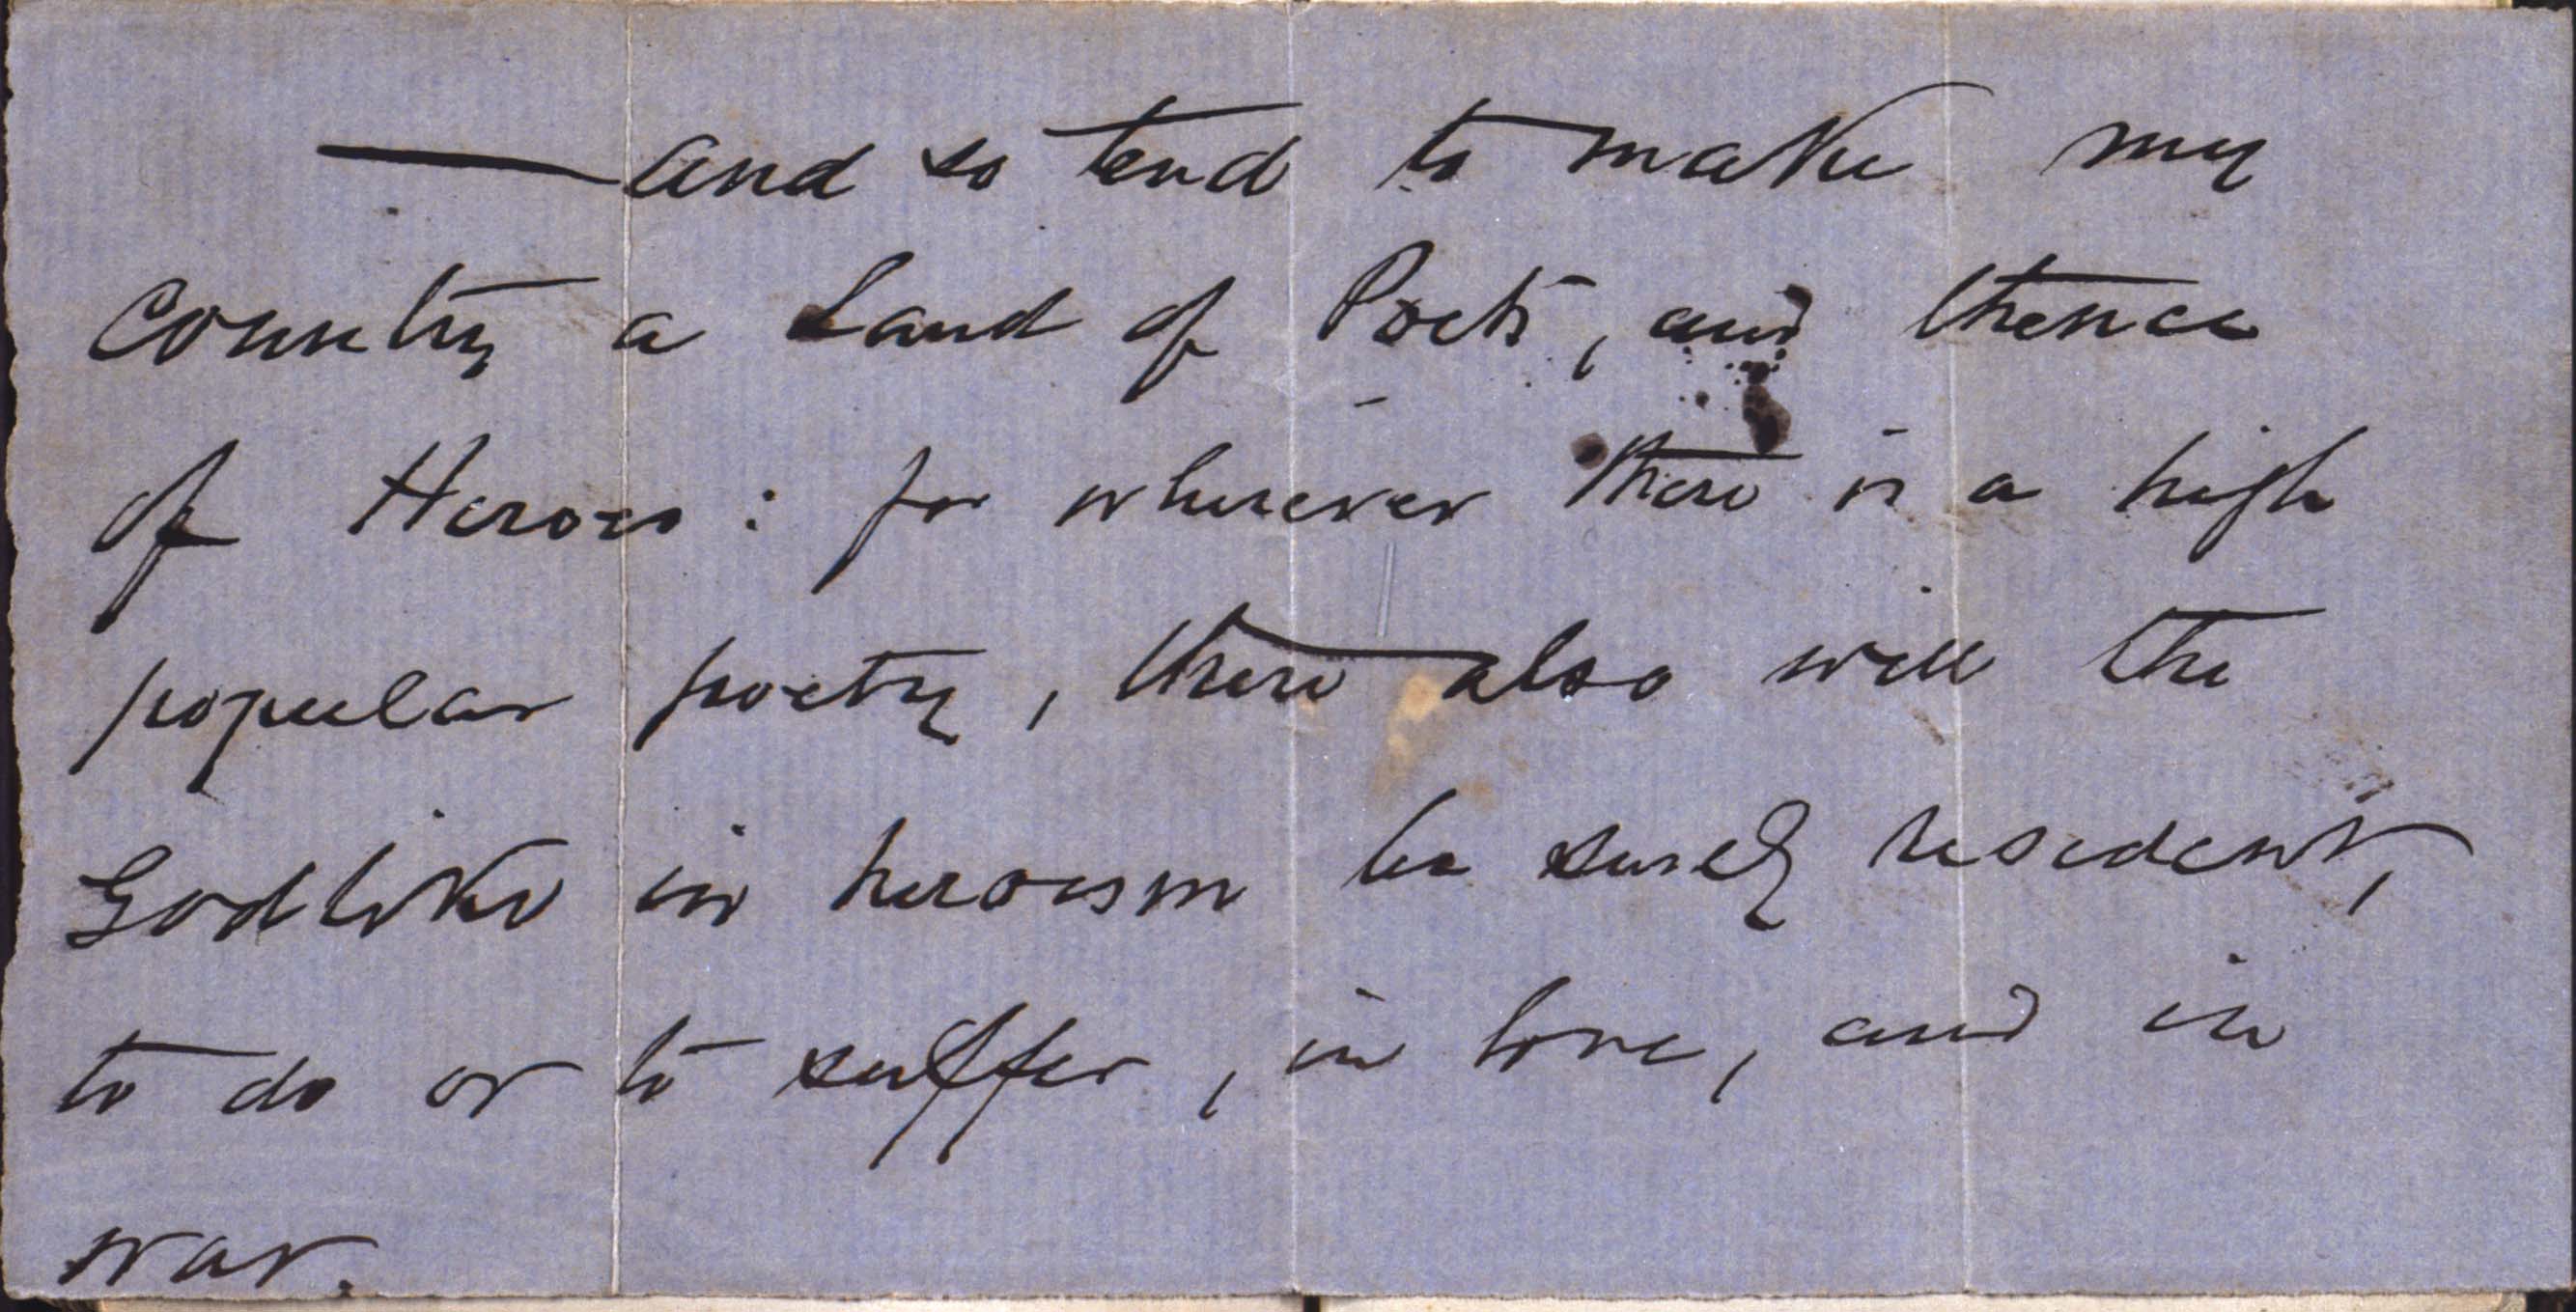 — and so tend to make my
country a Land of Poets, and thence
of Heroes: for wherever there is a high
popular poetry, there also will the
Godlike in heroism be surely resident,
to do or to suffer, in love, and in
war.